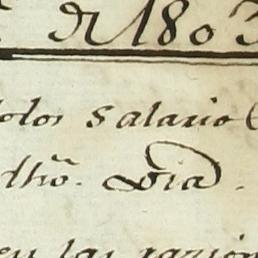 de 1803
dolos salario
dhõ. Dia.
en las razon